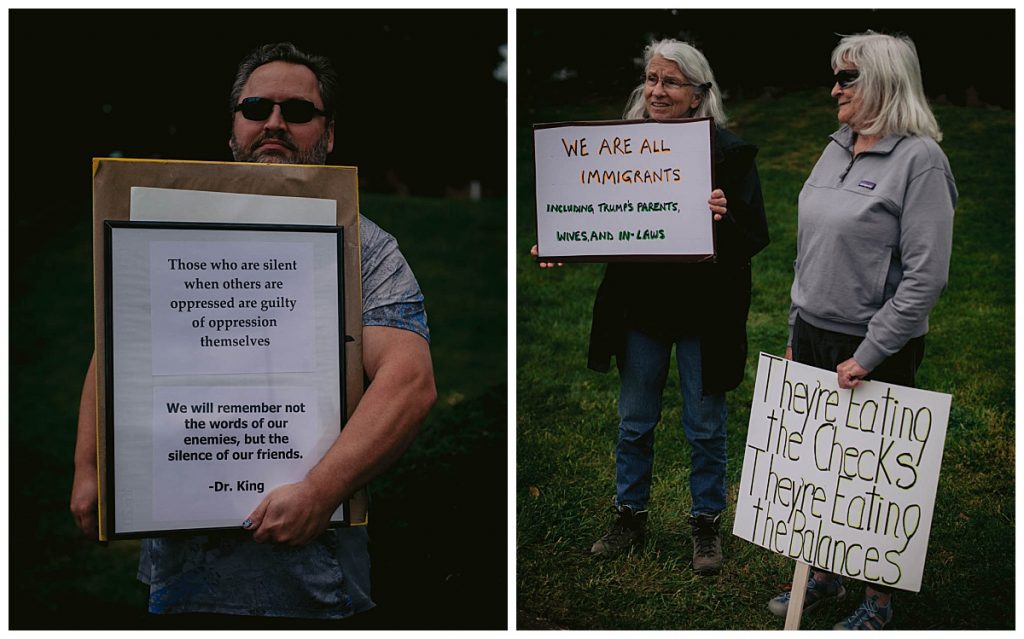 Those who are silent
when others are
oppressed are guilty
of oppression
themselves
We will remember not
the words of our
enemies, but the
silence of our friends.
-Dr. King
WE ARE ALL
IMMIGRANTS
INCLUDING TRUMP'S PARENTS,
WIVES, AND IN-LAWS
They're Eating
the Checks
They're Eating
the Balances